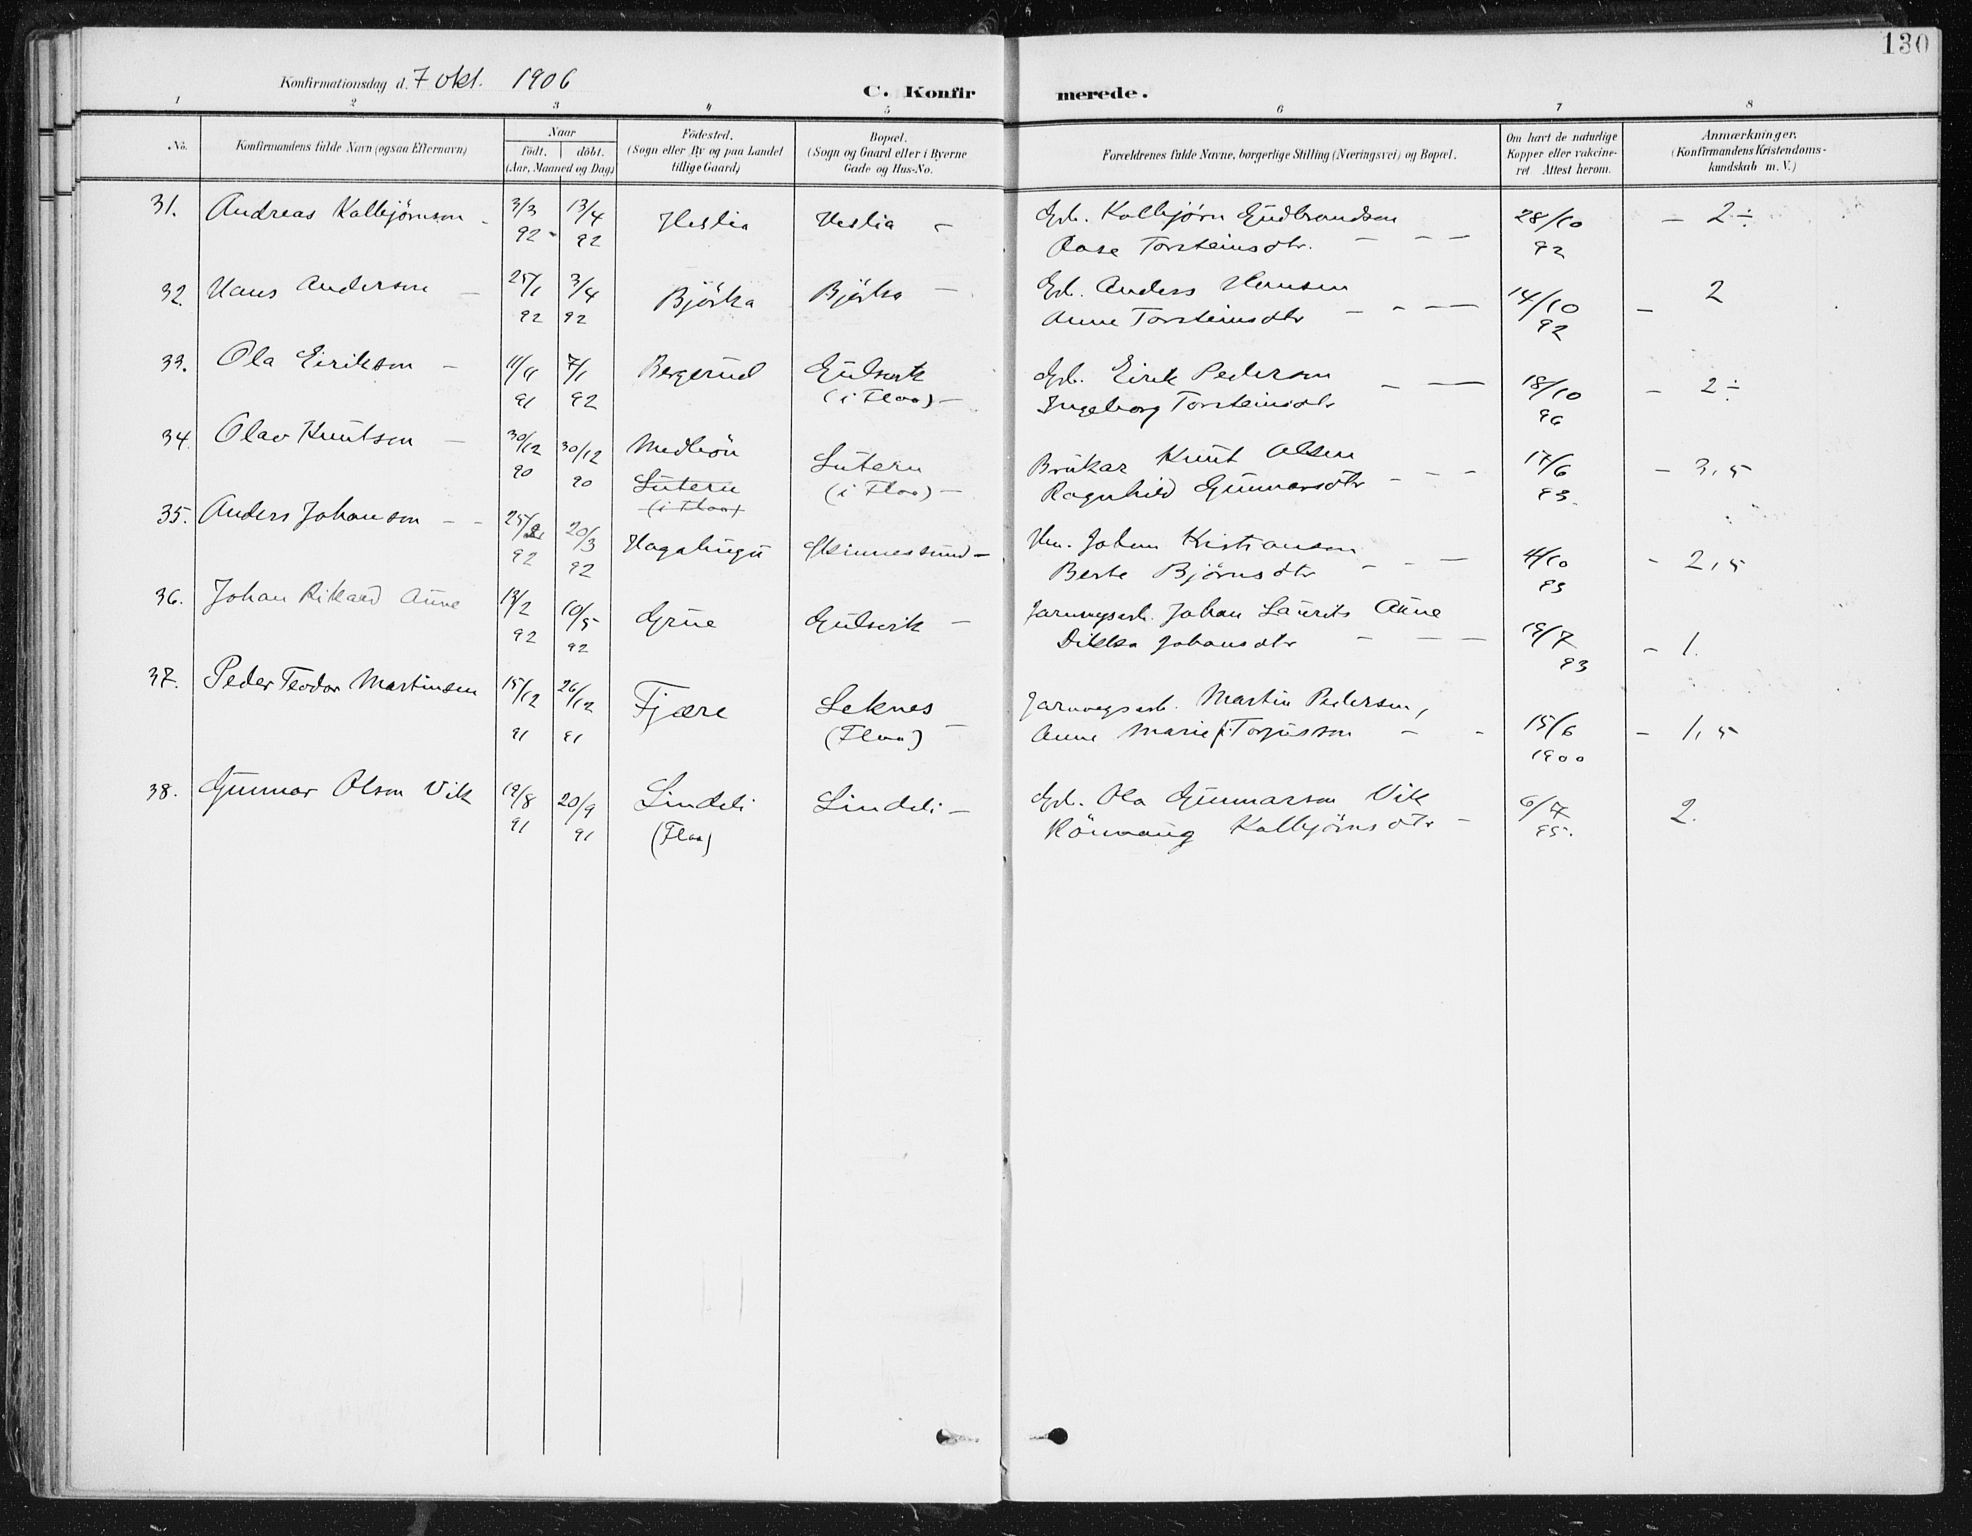 130
Konfirmationsdag d. 7 okt. 1906
C. Konfirmerede.
1 2 3 4 5 6 7 8
No.
Konfirmandens fulde Navn (ogsaa Efternavn)
Naar
født. døbt.
(Aar, Maaned og Dag)
Fødested.
(Sogn eller By og paa Landet
tillige Gaard)
Bopæl.
(Sogn og Gaard eller i Byerne
Gade og Hus-No.
Forældrenes fulde Navne, borgerlige Stilling (Næringsvei) og Bopæl.
Om havt de naturlige
Kopper eller vakcine-
ret Attest herom.
Anmærkninger.
(Konfirmandens Kristendoms-
kundskab m. V.)
31. Andreas Kolbjørnson - 3/3 92 - 13/4 92 Veslia Veslia - Gbr. Kolbjørn Gudbrandsen 28/10 92 - 2 ÷
Aase Torsteinsdtr. - - -
32. Hans Anderson - 25/1 92 3/4 92 Bjørka Bjørka - Gbr. Anders Hansen 14/10 92 - 2
Anne Torsteinsdtr - - - -
33. Ola Eirikson - 11/11 91 7/1 92 Bergerud Gulsvik Gbr. Eirik Pederson 18/10 96 - 2 ÷
(i Flaa) - Ingeborg Torsteinsdtr - -
34. Olav Knutson - 30/12 90 30/12 90 Medhön Sutern Brukar Knut Olsen 17/6 93. - 3,5
Sutern (i Flaa) - Ragnhild Gunnarsdtr - - -
(i Flaa)
35. Anders Johanson - - 25/2 92 20/3 92 Hagalingu - Hm. Johan Kristianson 4/10 93 - 2,5
Berte Björnsdtr - - -
36. Johan Rikard Aune 13/2 92 10/5 92 Grue Gulsvik - Jarnvegsarb. Johan Laurits Aune 19/7 93 - 1.
Dikka Johansdtr - - -
37. Peder Teodor Martinsen 15/12 91 26/12 91 Fjære Leknes Jarnvegsarb. Martin Pederson, 15/6 1900 - 1,5
(Flaa) - Anne Marie Torjusson - -
38. Gunnar Olson Vik 19/8 91 20/9 91 Lindeli Lindeli - Gbr. Ola Gunnarson Vik 6/7 95. 2.
(Flaa) Rönnaug Kolbjörnsdtr -